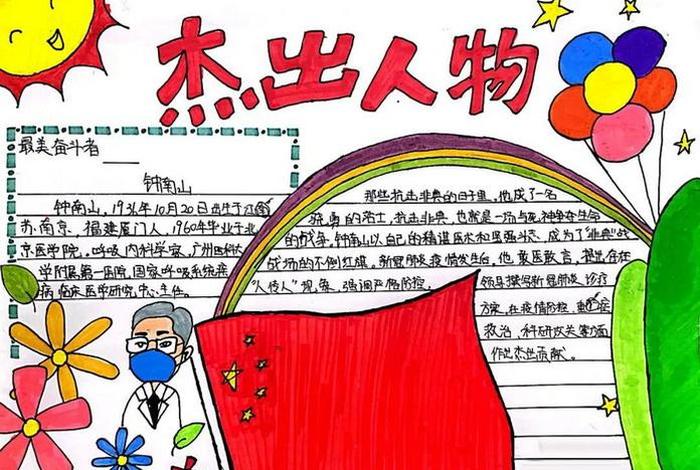 杰出人物
最美奋斗者——
钟南山
钟南山，1936年10月20日出生于江
苏南京，福建厦门人，1960年毕业于北
京医学院，呼吸内科学家，广州医科大
学附属第一医院国家呼吸系统疾
病临床医学研究中心主任。
那些抗击非典的日子里，他成了一名
骁勇的战士，抗击非典，也就是一场与死神争夺生命
的战争。钟南山以自己的精湛医术和坚强斗志，成为了“非典”战
战场的不倒红旗。新冠肺炎疫情发生后，他敢医敢言，提出存在
“人传人”现象，强调严格防控，
领导撰写新冠肺炎诊疗
方案，在疫情防控，重症
救治，科研攻关等方面
作出杰出贡献。